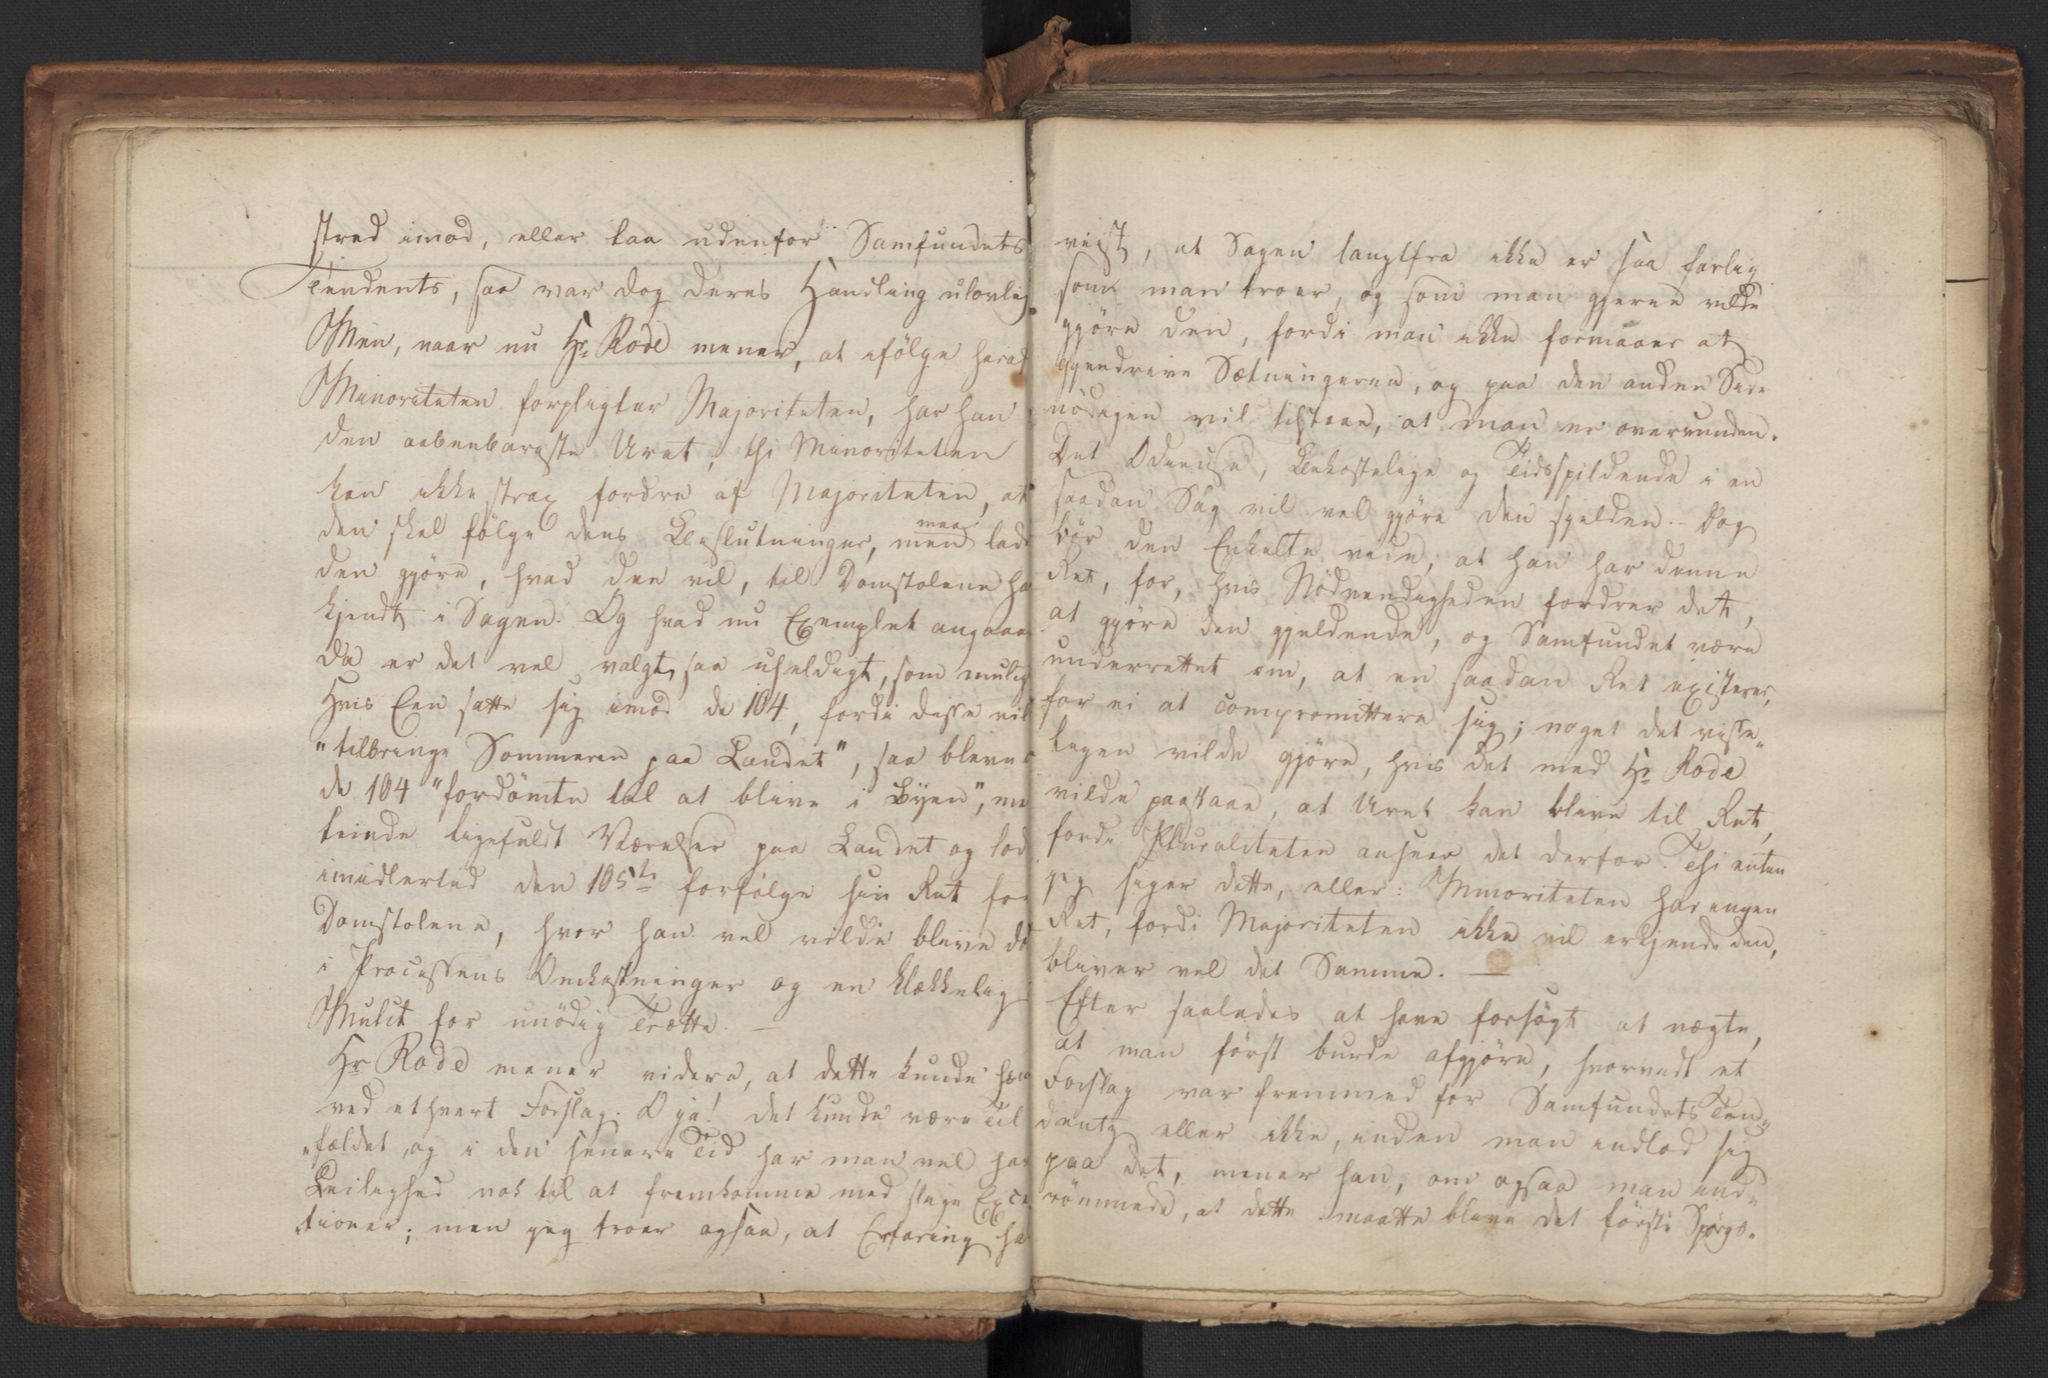 stred imod, eller laa udenfor Samfundets
Tendents, saa var dog deres Handling ulovlig.
Men, naar nu Hr. Rode mener, at ifölge heraf
Minoriteten forpligter Majoriteten, har han
den aabenbareste Uret; thi Minoriteten
kan ikke strax fordre af Majoriteten, at
den skal fölge dens Beslutninger, men maa lade
den gjöre, hvad den vil, til Domstolene ha
kjendt i Sagen. Og hvad nu Exemplet angaaer
da er det vel valgt saa uheldigt, som mulig
Hvis Een satte sig imod de 104, fordi disse vil
"tilbringe Sommeren paa Landet", saa bleve
de 104 "fordömte til at blive i Byen", me
leiede ligefuldt Værelser paa Landet og lod
imidlertid den 105te forfölge sin Ret for
Domstolene, hvor han vel vilde blive dö
i Processens Omkostninger og en klækkelig
Mulct for unödig Trætte. —
Hr Rode mener videre, at dette kunde skee
ved ethvert Forslag. O ja! det kunde være Til
"fældet, og i den senere Tid har man vel havt
Leilighed nok til at fremkomme med slige Exce
tioner; men jeg troer ogsaa, at Erfaring ha
viist, at Sagen langtfra ikke er saa farlig
som man troer, og som man gjerne vilde
gjöre den, fordi man ikke formaaer at
gjendrive Sætningerne, og paa den anden Side
nödigen vil tilstaae, at man er overvunden.
Det Odieuse, Bekostelige og Tidsspildende i en
saadan Sag vil vel gjöre den sjelden. Dog
bör den Enkelte vide, at han har denne
Ret, for, hvis Nödvendigheden fordrer det,
at gjöre den gjeldende, og Samfundet være
underrettet om, at en saadan Ret existerer,
for ei at compromittere sig; noget det visse„
ligen vilde gjöre, hvis det med Hr Rode
vilde paastaae, at Uret kan blive til Ret,
fordi Pluraliteten anseer det derfor. Thi enten
jeg siger dette, eller: Minoriteten har ingen
Ret, fordi Majoriteten ikke vil erkjende den,
bliver vel det Samme. —
Efter saaledes at have forsögt at nægte,
at man först burde afgjöre, hvorvidt et
Forslag var fremmed for Samfundets Ten„
dents eller ikke, inden man indlod sig
paa det, mener han, om ogsaa man ind„
römmede, at dette maatte blive det förste Spörgs„